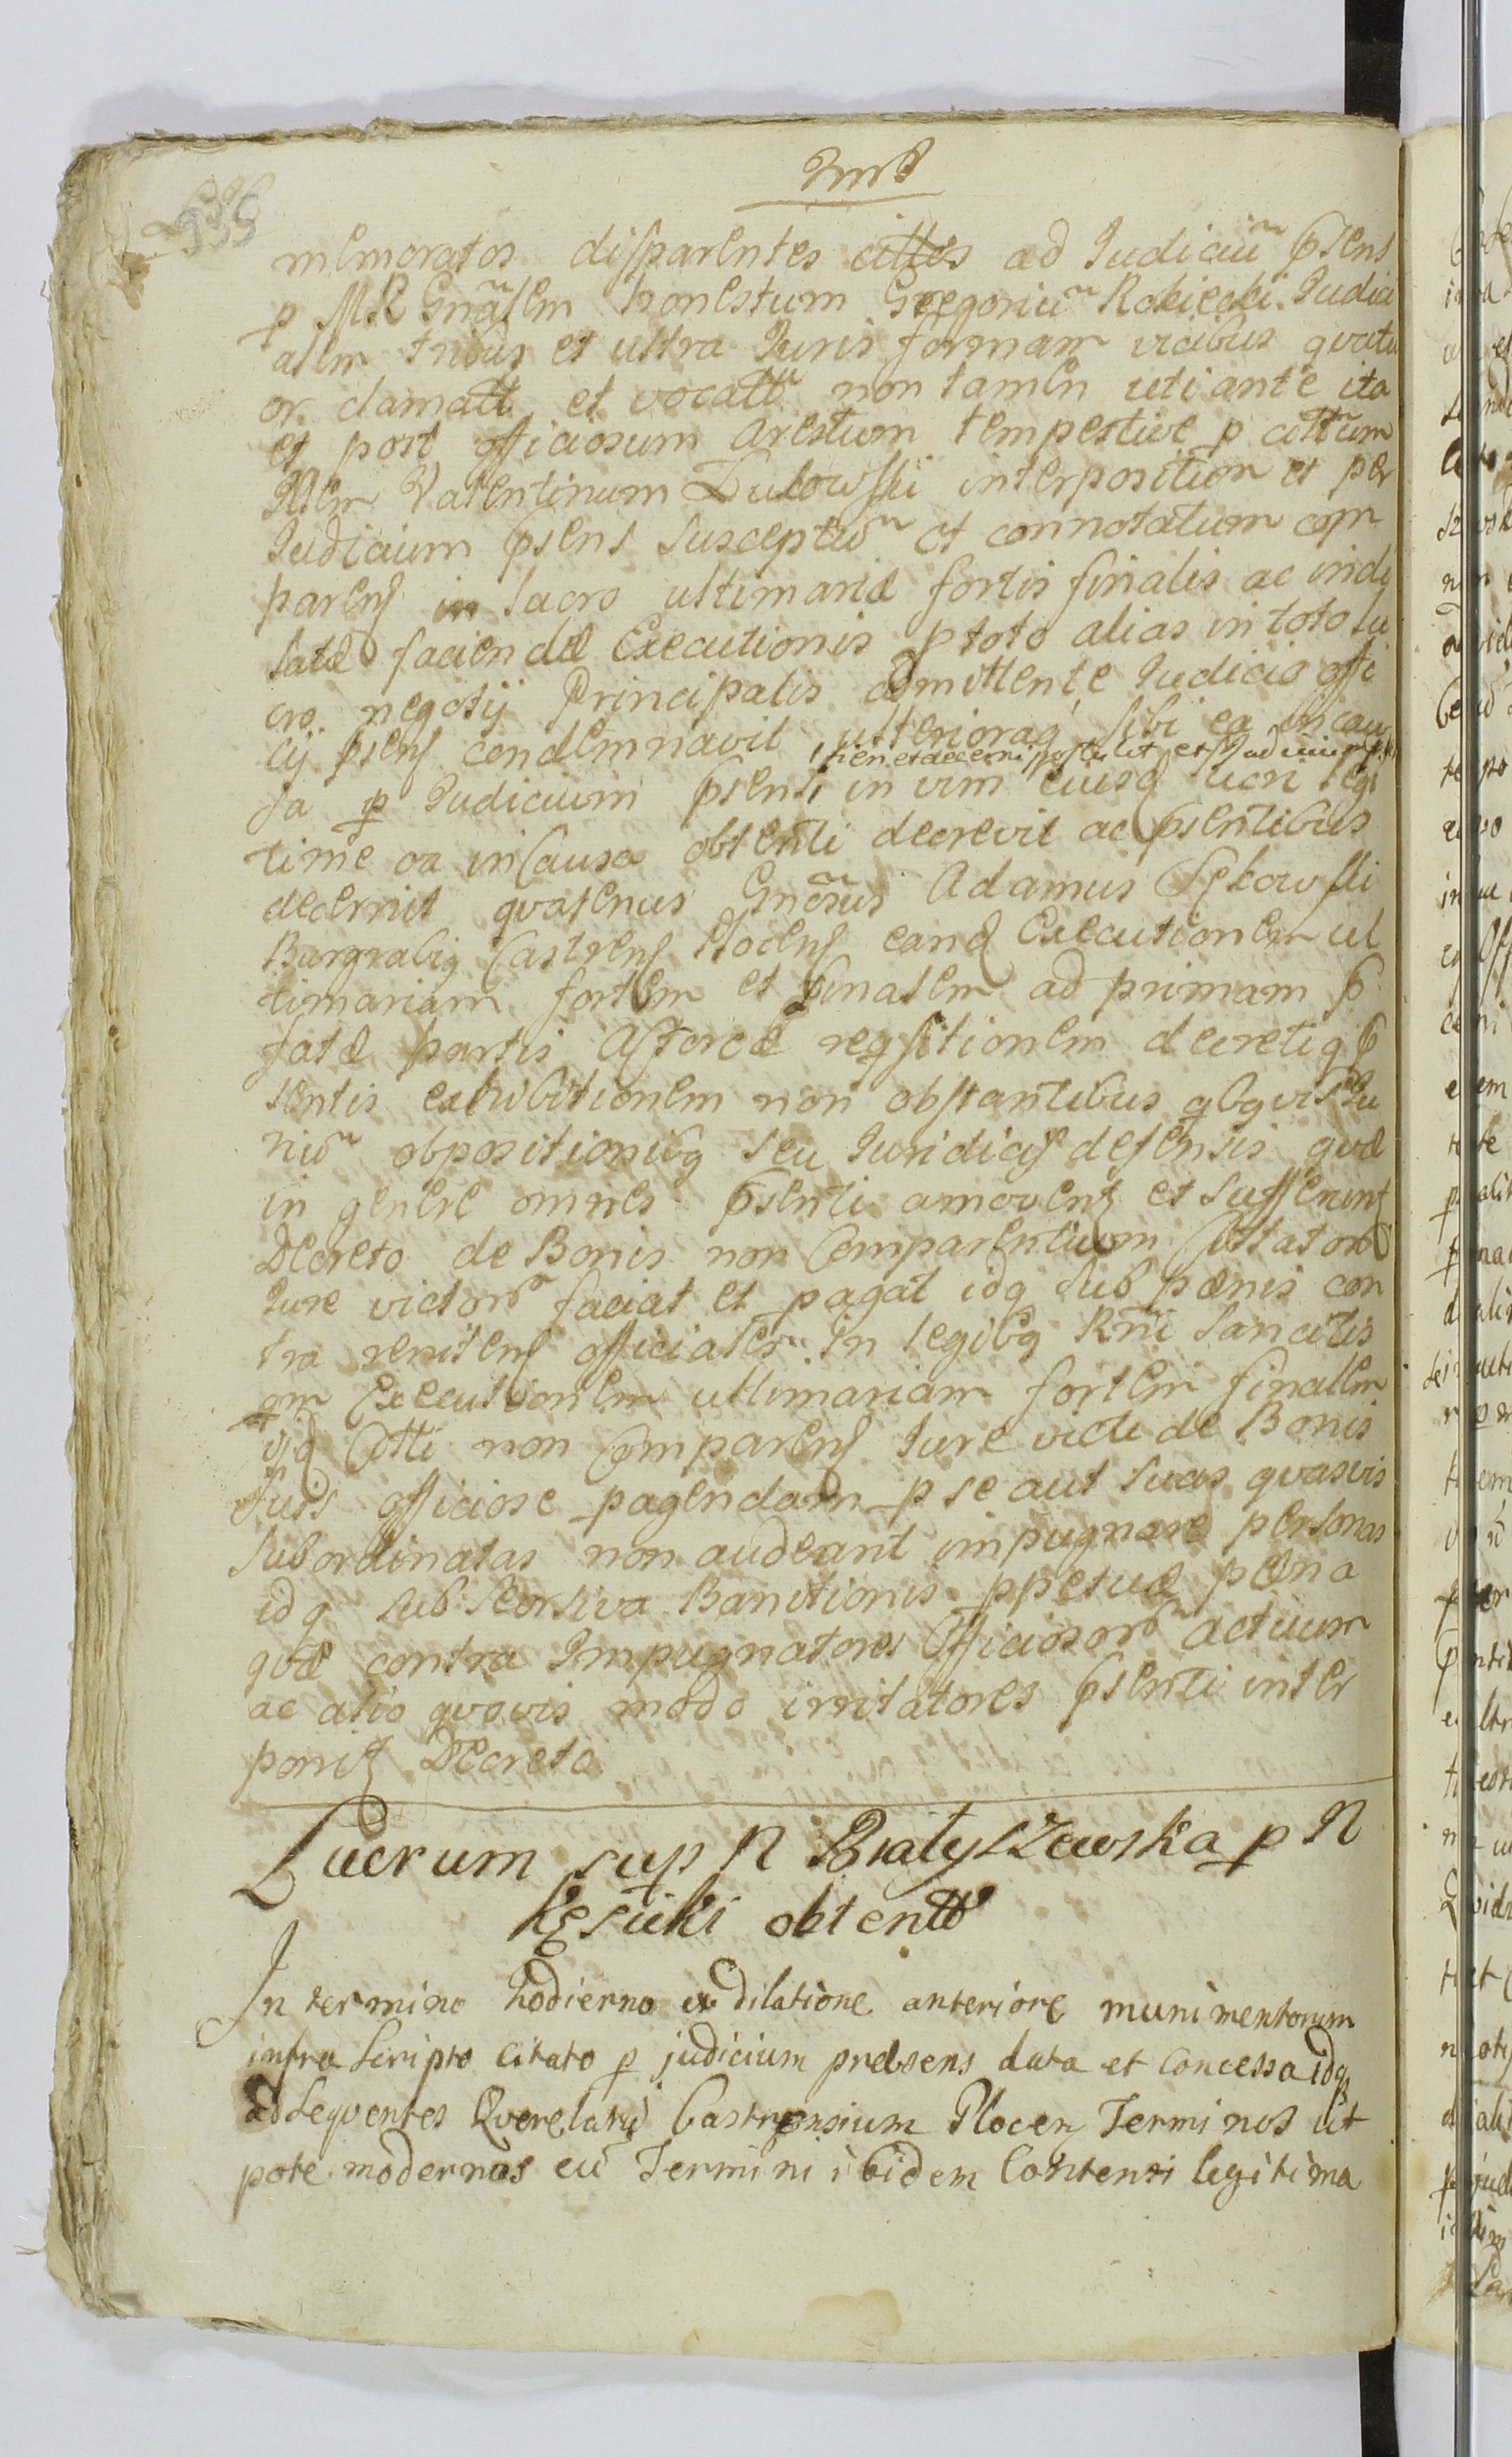 memoratos disparentes citt̃os ad Judiciũ p̃sens
p MR Gnãlem honestum Gregoriũ Rokiecki Judici
alem tribus et ultra Juris formam vicibus qvatu
or clamatt et vocatt̃ non tamen uti ante ita
et post officiosum Arestum tempestive p cittum
Valentinum Dulowski interposition et per
Judicium p̃sens susceptũ et connotatum com
parens in lucro ultimariæ fortis finalis ac indi
latæ faciendæ Executionis p toto alias in toto lu
cro negotij Principalis admittente Judicio offi
cij p̃sens condemnavit ulterioraq sibi ea in cau
sa p Judicium p̃senti in vim eiusq lucri legi
time in Causa obtenti decrevit ac p̃sentibus
decernit qvatenus Gnõsus Adamus Sękowski
Burgrabiq Castrens Plocens eand Executionem ul
timariam fortem et finalem ad primam p̃
fatæ partis Actoreæ reqsitionem decretiq p̃
sentis exhibitionem non obstantibus qbqvis Ju
riũ obpositionibq seu Juridicis defensis qvæ
in genere omnes p̃senti amovent et sufferunt
Decreto de Bonis non Comparentium Cittator̃
Jure victor̃ faciat et pagat idq sub pænis con
tra renitens officialem in legibq Rñi Sancitis
qm Executionem ultimariam fortem finalem
ijd Citti non Comparens Jure victi de Bonis
suis officiose pagendam p se aut suas qvasvis
subordinatas non audeant impugnare personas
idq sub seorsiva Banitionis ppetuæ pæna
qvæ contra Impugnatores Officiosor̃ actuum
ac alio qvovis modo irritatores p̃senti inter
ponit Decreto
Lucrum sup N Białyszewska p N
Kęsicki obtent
In termino hodierno ex dilatione anteriore munimentorum
infra scripto citato p judicium præsens data et concessa idq
ad seqventes Qverelarũ Castrensium Plocen Terminos ut
pote modernos eũ Termini ibidem Contenti legitima